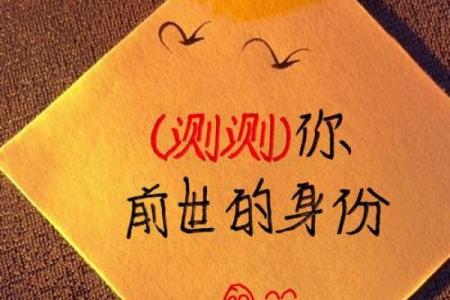 (测测)你
前世的身份